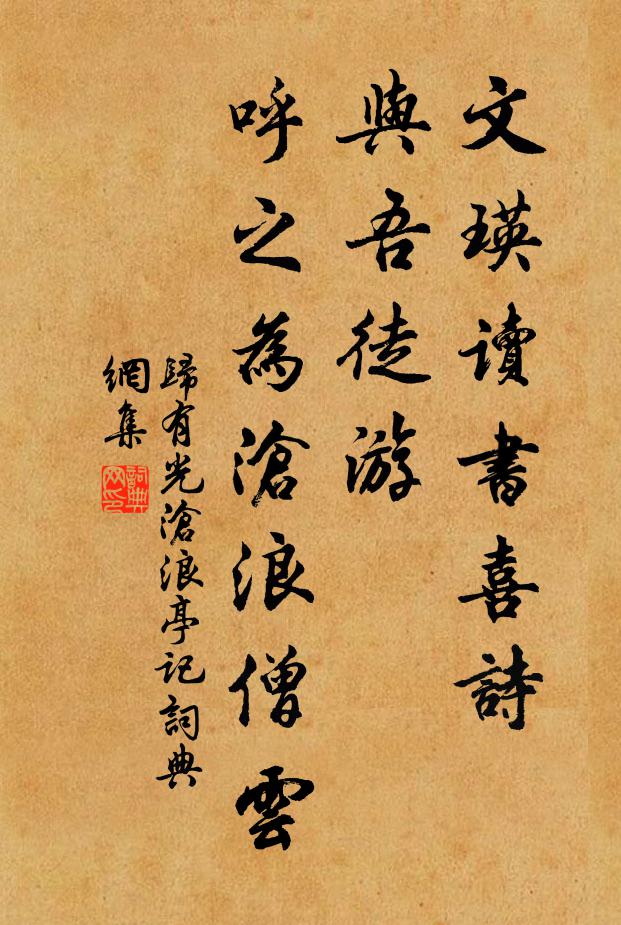 文瑛讀書喜詩
與吾徒游
呼之為滄浪僧雲
歸有光滄浪亭記詞典
網集
詞典
网印